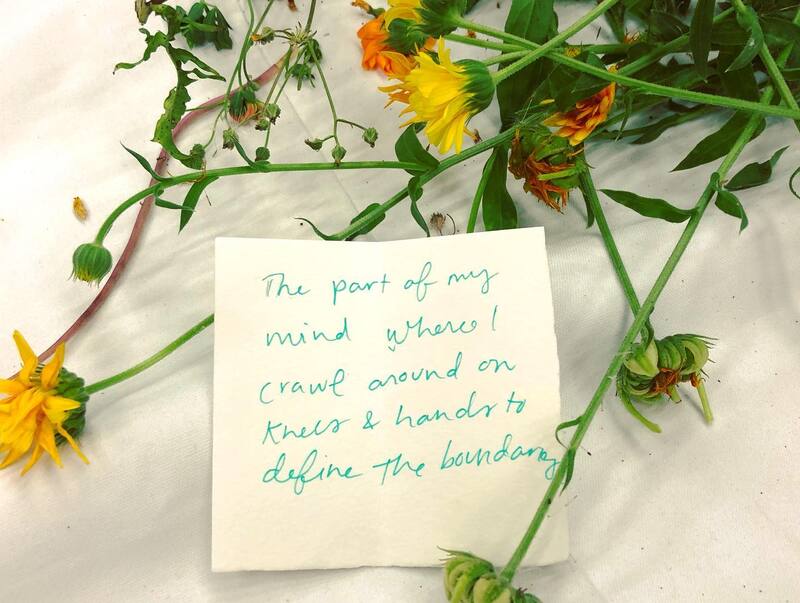 The part of my
mind where I
crawl around on
knees & hands to
define the boundary